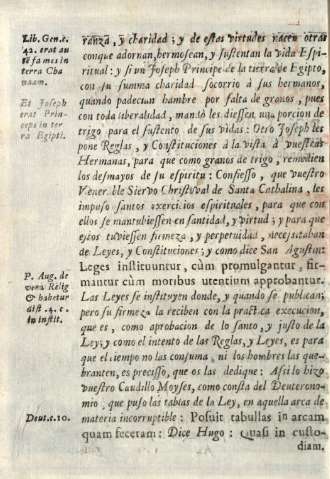 Lib. Gen. c.
42. erat au
tẽ fames in
terra Cha
naam.
Et Joseph
erat Prin-
ceps in ter
ra Egipti.
P. Aug. de
vera Relig
& habetur
dist. 4. c.
in instit.
Deut. c. 10.
ranza, y charidad; y de estas virtudes nacen otras
conque adornan, hermosean, y sustentan la vida Espi-
ritual: y si un Joseph Principe de la tierra de Egipto,
con su summa charidad socorriò à sus hermanos,
quando padecian hambre por falta de granos, pues
con toda liberalidad, mandò les diessen una porcion de
trigo para el sustento de sus vidas: Otro Joseph les
pone Reglas, y Constituciones à la vista à vuestras
Hermanas, para que como granos de trigo, remedien
los desmayos de su espiritu: Confiesso, que vuestro
Venerable Siervo Christoval de Santa Cathalina, les
impuso santos exercicios espirituales, para que con
ellos se mantubiessen en santidad, y virtud; y para que
estos tuviessen firmeza, y perpetuidad, necessitaban
de Leyes, y Constituciones; y como dice San Agustin:
Leges instituuntur, cùm promulgantur, fir-
mantur cùm moribus utentium approbantur.
Las Leyes se instituyen donde, y quando se publican;
pero su firmeza la reciben con la practica execucion,
que es, como aprobacion de lo santo, y justo de la
Ley; y como el intento de las Reglas, y Leyes, es para
que el tiempo no las consuma, ni los hombres las que-
branten, es precisso, que os las dedique: Assi lo hizo
vuestro Caudillo Moyses, como consta del Deuterono-
mio, que puso las tablas de la Ley, en aquella arca de
materia incorruptible: Posuit tabullas in arcam
quam feceram: Dice Hugo: Quasi in custo-
diam.